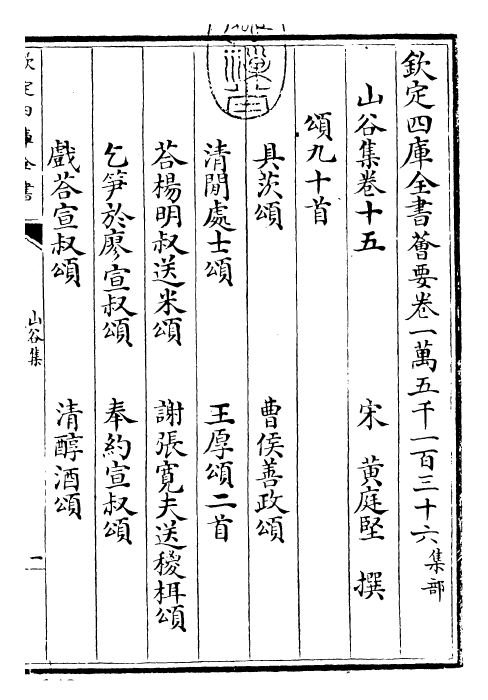 欽定四庫全書薈要卷一萬五千一百三十六集部
山谷集卷十五
宋 黃庭堅 撰
頌九十首
具茨頌 曹侯善政頌
清閒處士頌 王厚頌二首
荅楊明叔送米頌 謝張寬夫送㮨栮頌
乞笋於廖宣叔頌 奉約宣叔頌
戲荅宣叔頌 清醇酒頌
欽定四庫全書
山谷集
一